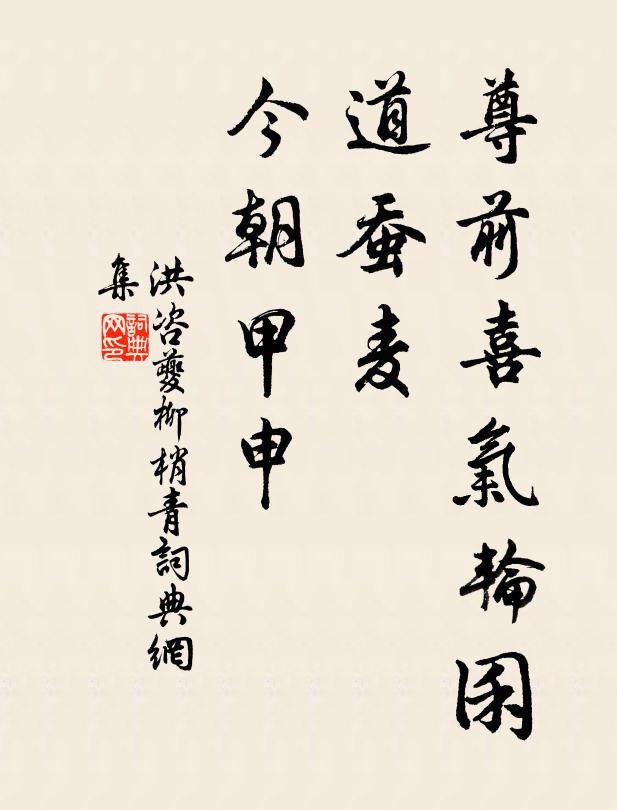 尊前喜氣輪囷
道蚕麦
今朝甲申
洪咨夔柳梢青詞典網
集
詞典
网印